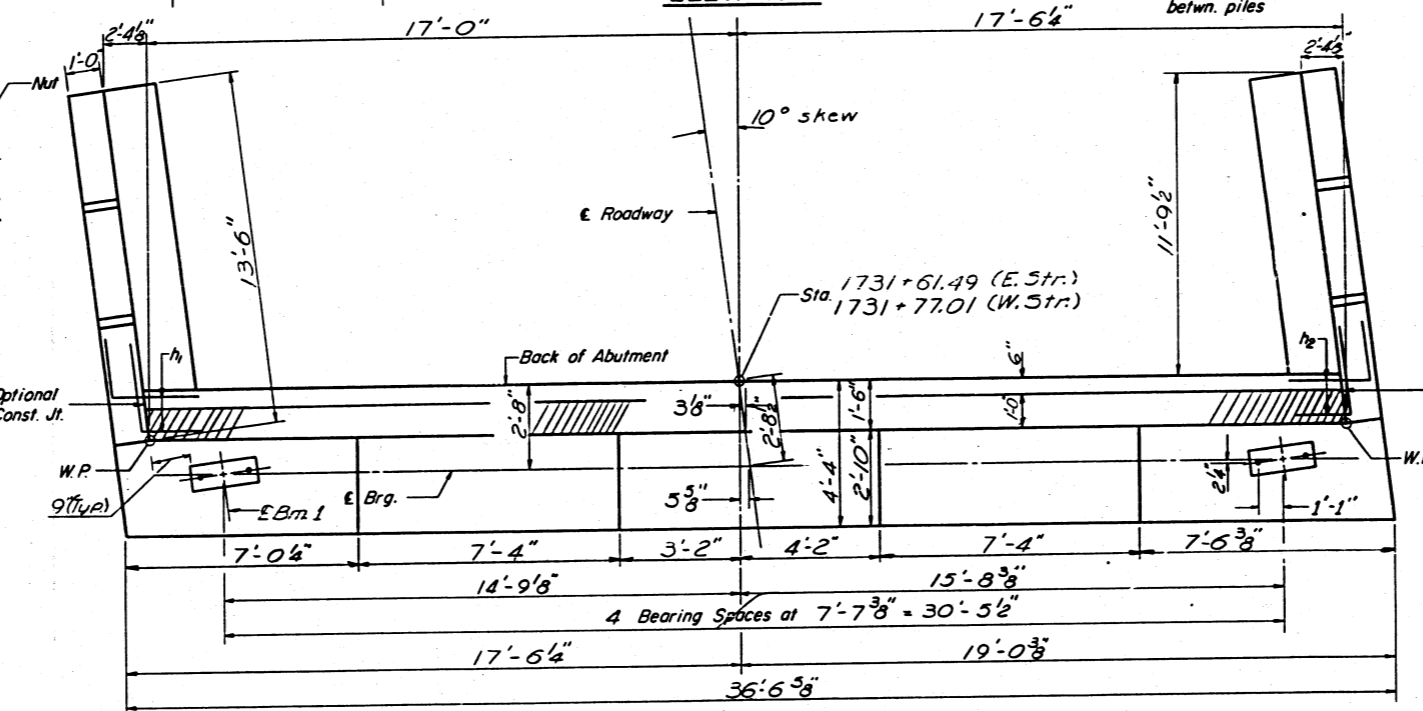 betwn. piles
17'-0"
17'-6¼"
2'-4⅛"
2'-4⅛"
1'-0"
Nut
10° skew
13'-6"
11'-9½"
℄ Roadway
Sta. 1731+61.49 (E. Str.)
1731+77.01 (W. Str.)
h₁
h₂
Back of Abutment
6"
Optional
Const. Jt.
2'-8"
3⅛"
2'-8½"
1'-6"
1'-0"
W.P.
W.P.
4'-4"
2'-10"
2¼"
9"(Typ.)
℄ Bm. 1
℄ Brg.
5⅝"
1'-1"
7'-0¼"
7'-4"
3'-2"
4'-2"
7'-4"
7'-6⅜"
14'-9⅛"
15'-8⅜"
4 Bearing Spaces at 7'-7⅜" = 30'-5½"
17'-6¼"
19'-0⅜"
36'-6⅝"